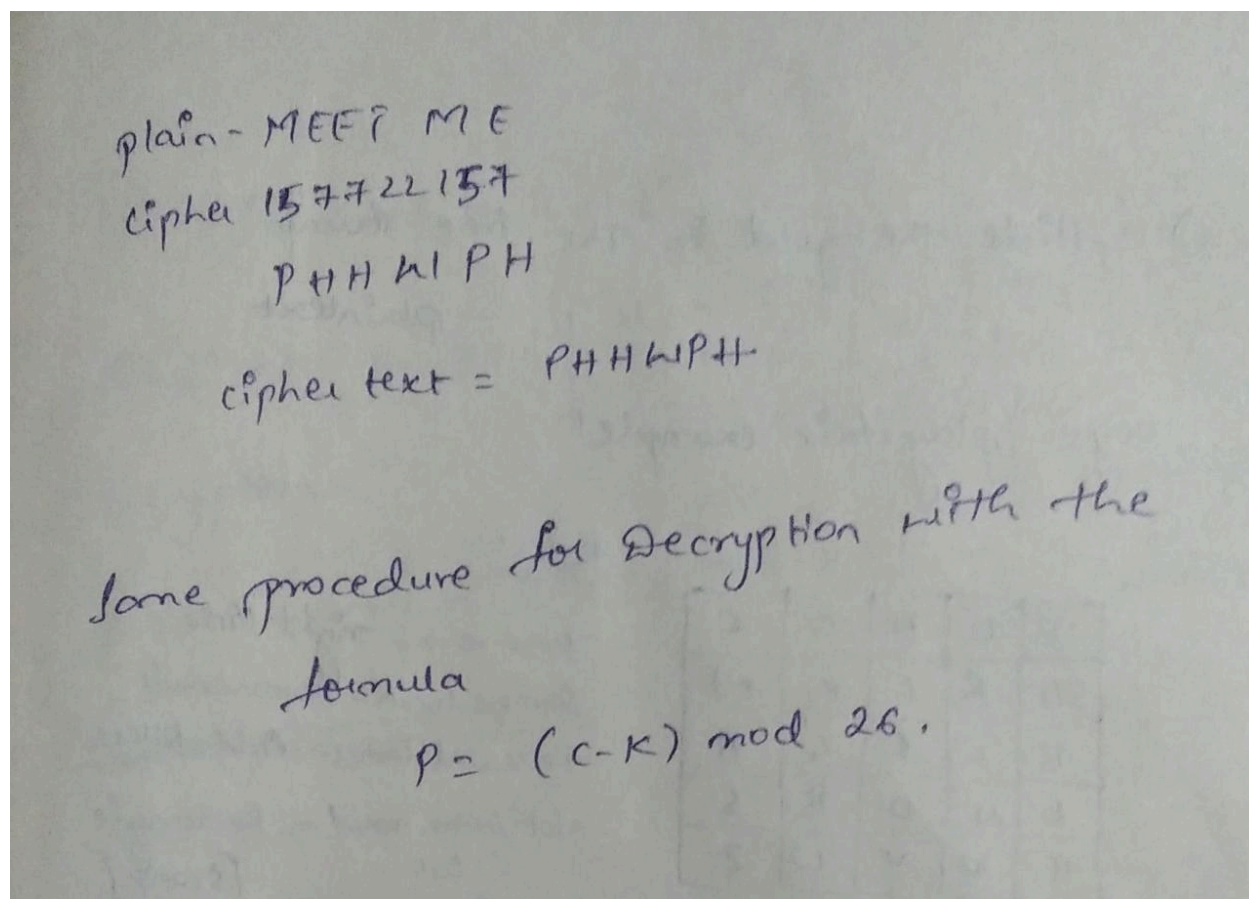 plain - MEET ME
cipher 15 7 7 22 15 7
P H H W P H
cipher text = PHHWPH
Same procedure for Decryption with the
formula
P = (C-K) mod 26.